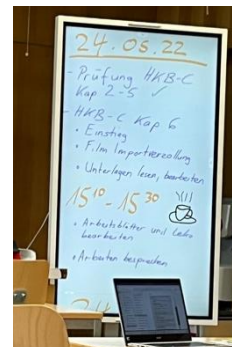 24.05.22
- Prüfung HKB-C
Kap 2-5 ✓
- HKB-C Kap 6
• Einstieg
• Film Importverzollung
• Unterlagen lesen, bearbeiten
15¹⁰ - 15³⁰
• Arbeitsblätter und
bearbeiten
• Arbeiten besprechen